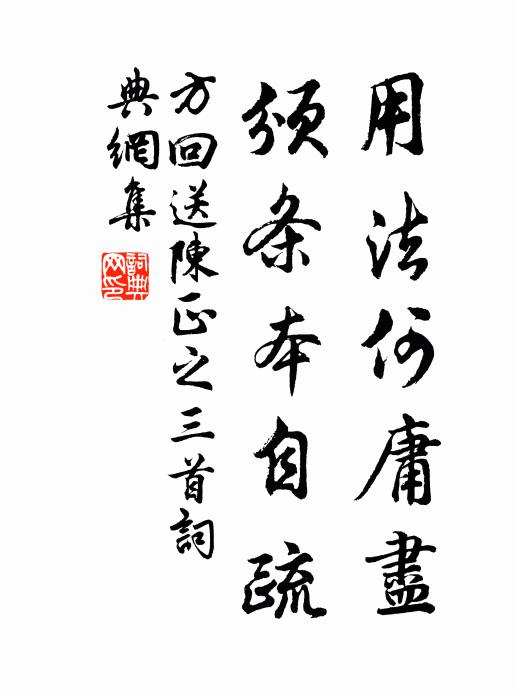 用法何庸盡
頒条本自疏
方回送陳正之三首詞
典網集
詞典网印